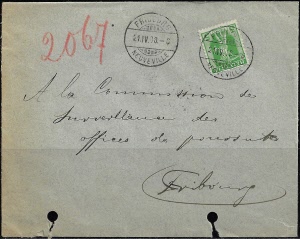 2067
FRIBOURG
21.IV.10.-5
NEUVEVILLE
NEUVEVILLE
A la Commission de
Surveillance des
offices de poursuites
Fribourg